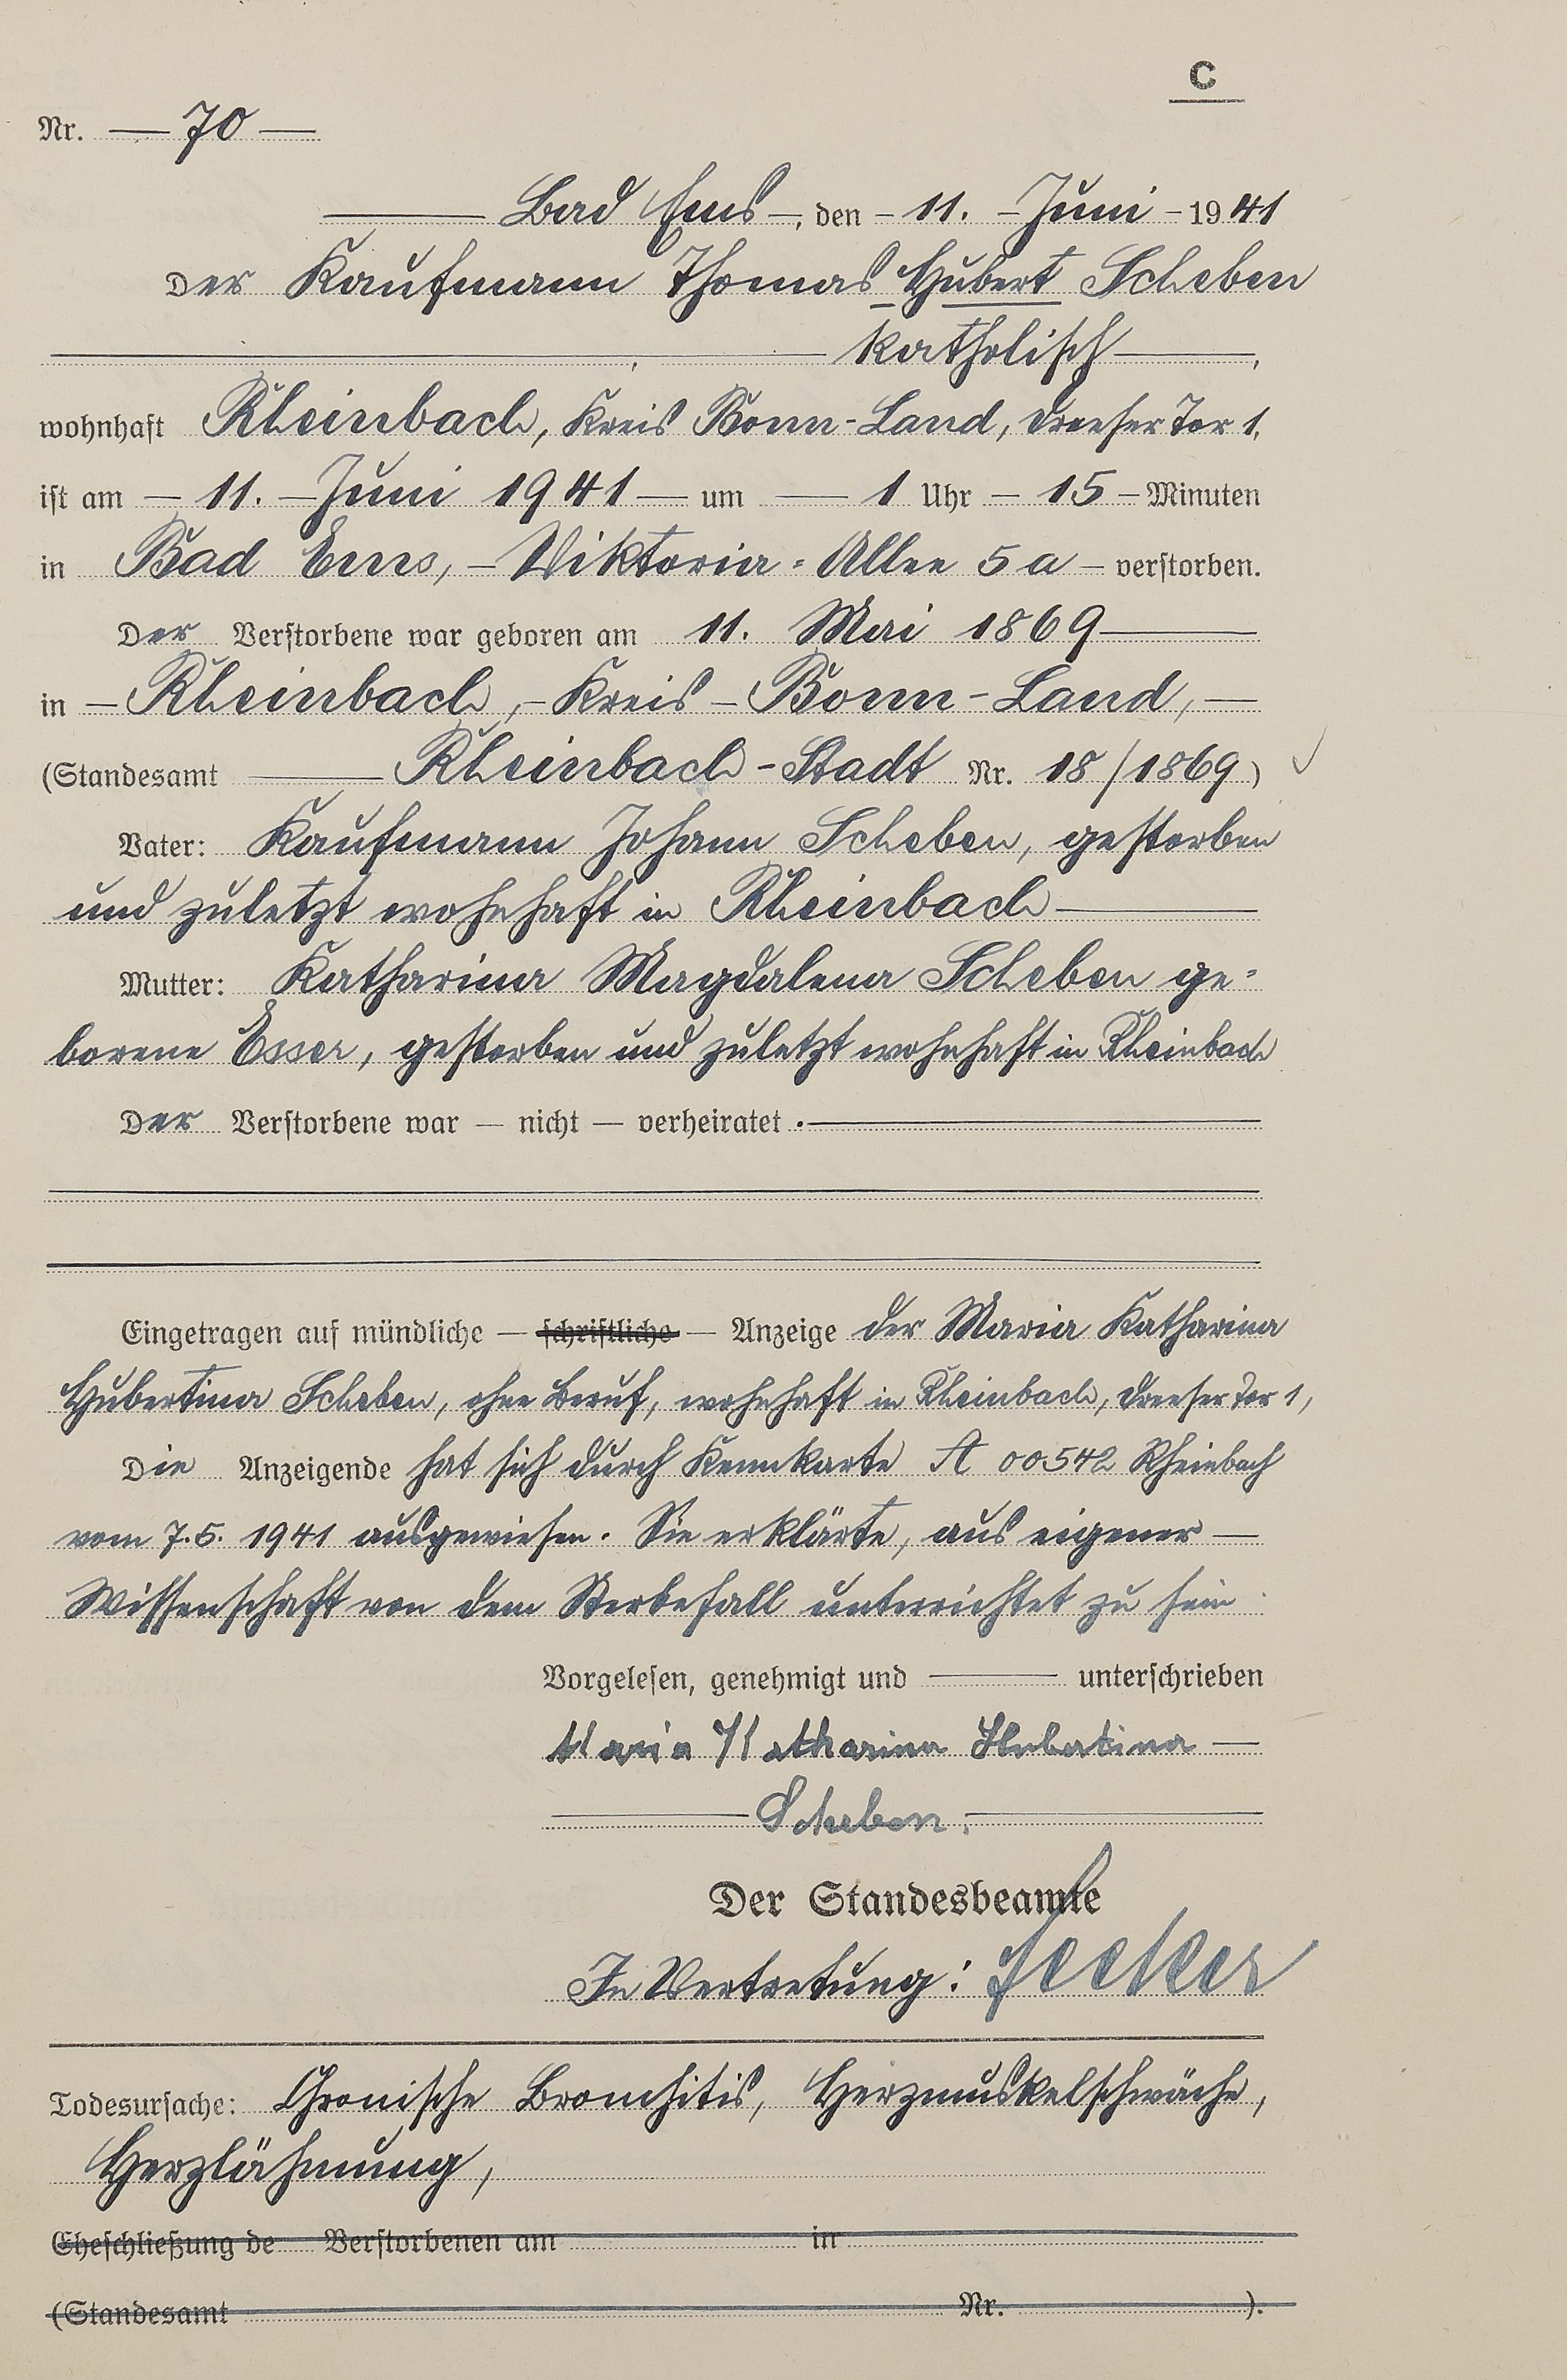 C
Nr. — 70 —
Bad Ems —, den — 11. — Juni — 1941
Der Kaufmann Thomas Hubert Scheben
, katholisch ,
wohnhaft Rheinbach, Kreis Bonn-Land, Dreeser Tor 1,
ist am — 11. — Juni 1941 — um — 1 Uhr — 15 — Minuten
in Bad Ems, — Viktoria-Allee 5a — verstorben.
Der Verstorbene war geboren am 11. Mai 1869 —
in — Rheinbach, — Kreis — Bonn-Land, —
(Standesamt — Rheinbach-Stadt Nr. 18/1869)
Vater: Kaufmann Johann Scheben, gestorben
und zuletzt wohnhaft in Rheinbach —
Mutter: Katharina Magdalena Scheben ge-
borene Esser, gestorben und zuletzt wohnhaft in Rheinbach
Der Verstorbene war — nicht — verheiratet .—
Eingetragen auf mündliche — schriftliche — Anzeige der Maria Katharina
Hubertina Scheben, ohne Beruf, wohnhaft in Rheinbach, Dreeser Tor 1,
Die Anzeigende hat sich durch Kennkarte A 00542 Rheinbach
vom 7.5. 1941 ausgewiesen. Sie erklärte, aus eigener —
Wissenschaft von dem Sterbefall unterrichtet zu sein.
Vorgelesen, genehmigt und — unterschrieben
Maria Katharina Hubertina —
— Scheben. —
Der Standesbeamte
In Vertretung:
Todesursache: Chronische Bronchitis, Herzmuskelschwäche,
Herzlähmung,
Eheschließung de Verstorbenen am in
(Standesamt Nr. ).